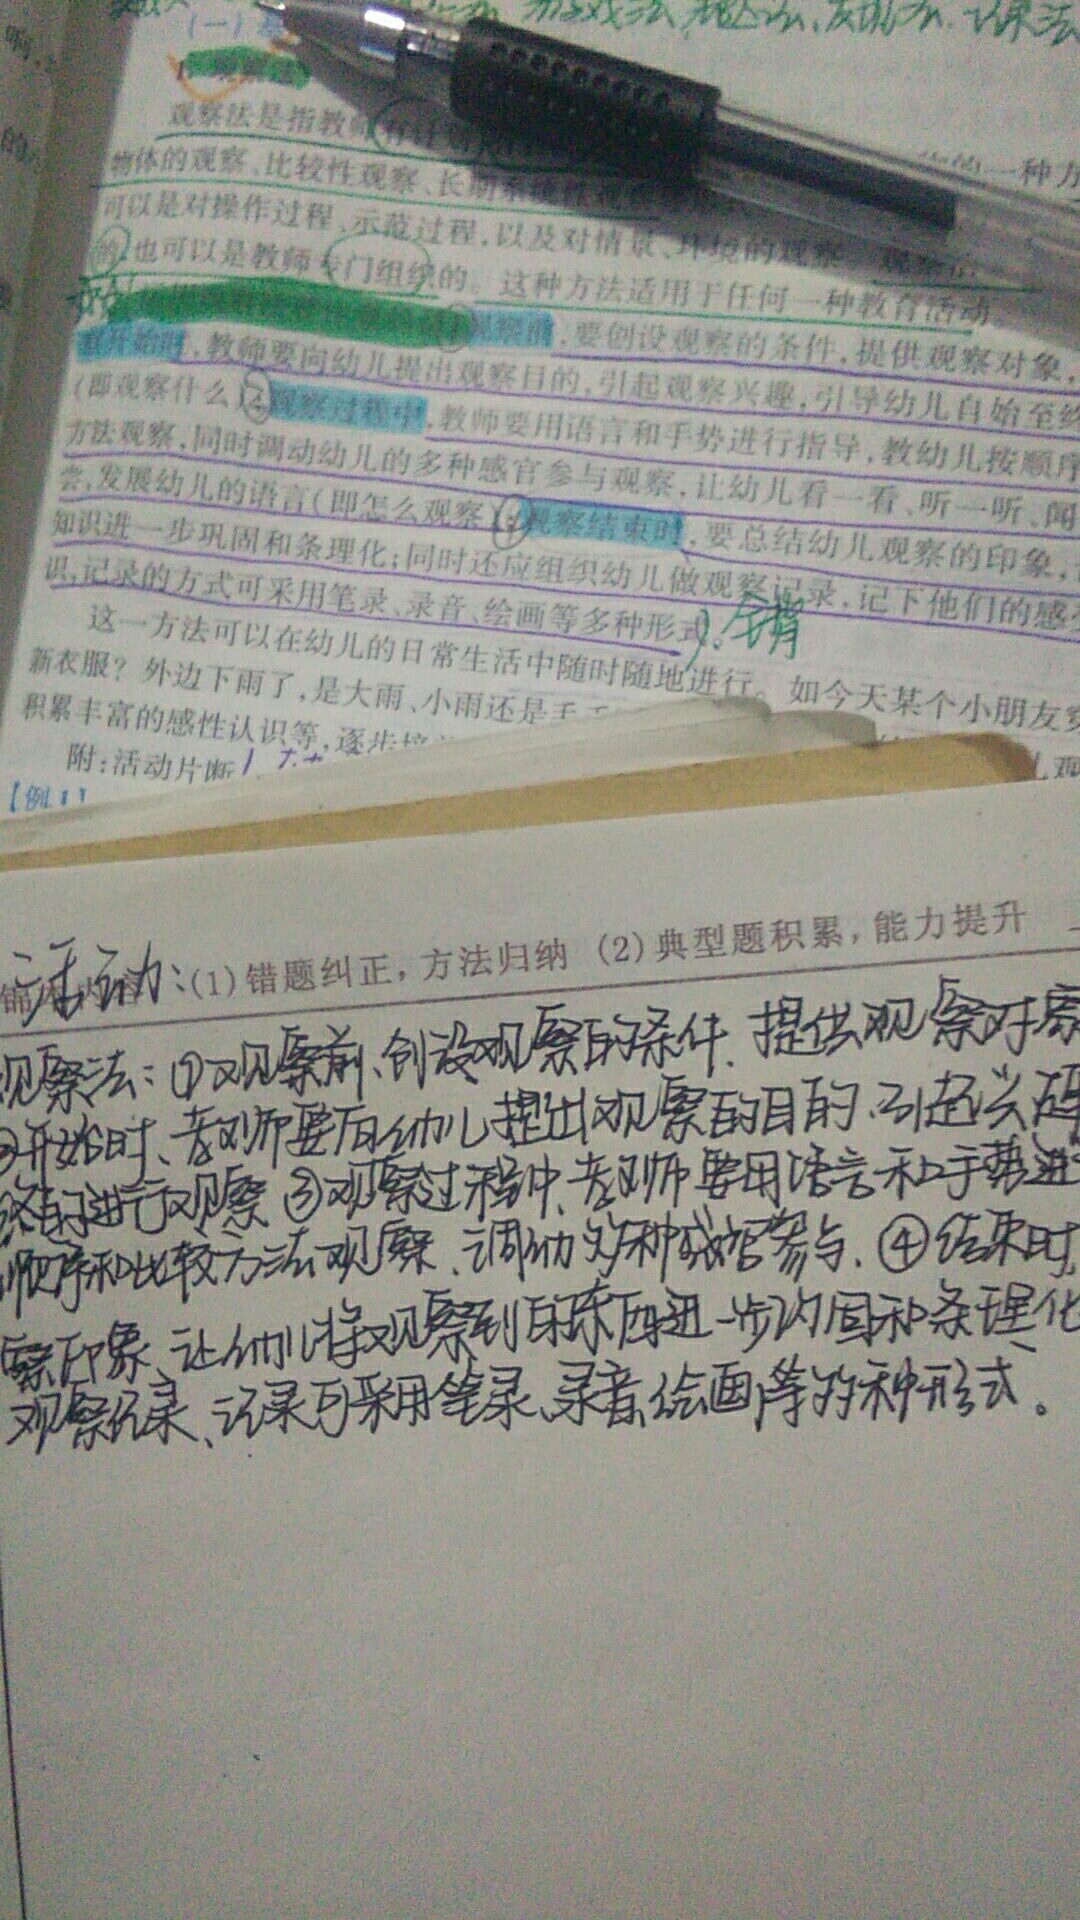 游戏法
(一)
观察法
观察法是指教师有计
一种方
物体的观察、比较性观察、长期系统性观
可以是对操作过程、示范过程,以及对情景、环境的观察。观察
的,也可以是教师专门组织的。这种方法适用于任何一种教育活动。
观察前,要创设观察的条件,提供观察对象,
开始时,教师要向幼儿提出观察目的,引起观察兴趣,引导幼儿自始至终
(即观察什么)。观察过程中,教师要用语言和手势进行指导,教幼儿按顺序
方法观察,同时调动幼儿的多种感官参与观察,让幼儿看一看、听一听、闻
尝,发展幼儿的语言(即怎么观察)。④观察结束时,要总结幼儿观察的印象,
知识进一步巩固和条理化;同时还应组织幼儿做观察记录,记下他们的感
识,记录的方式可采用笔录、录音、绘画等多种形式。全背
这一方法可以在幼儿的日常生活中随时随地进行。如今天某个小朋友穿
新衣服?外边下雨了,是大雨、小雨还是毛
积累丰富的感性认识等,逐步培
附:活动片断
【例1】
活动:(1)错题纠正,方法归纳 (2)典型题积累,能力提升
观察法:①观察前、创设观察的条件、提供观察对象
②开始时、教师要向幼儿提出观察的目的、引起兴趣
终的进行观察③观察过程中、教师要用语言和手势进
顺序和比较方法观察、调动多种感官参与、④结束时
察印象、让幼儿将观察到的东西进一步巩固和条理化
观察记录、记录可采用笔录、录音、绘画等多种形式。